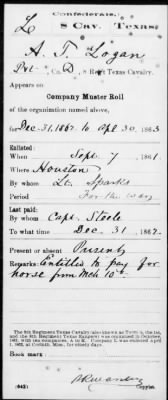 Confederate.
L 8 Cav. Texas.
A. T. Logan
Pvt, Co. D, 8 Reg't Texas Cavalry.
Appears on
Company Muster Roll
of the organization named above,
for Dec. 31, 1862 to Apl 30, 1863.
Enlisted:
When Sept 7, 1861.
Where Houston
By whom Lt. Sparks
Period For the war
Last paid:
By whom Capt. Steele
To what time Dec 31, 1862.
Present or absent Present
Remarks: Entitled to pay for
horse from Mch 10th
Book mark:
(642) Copyist.